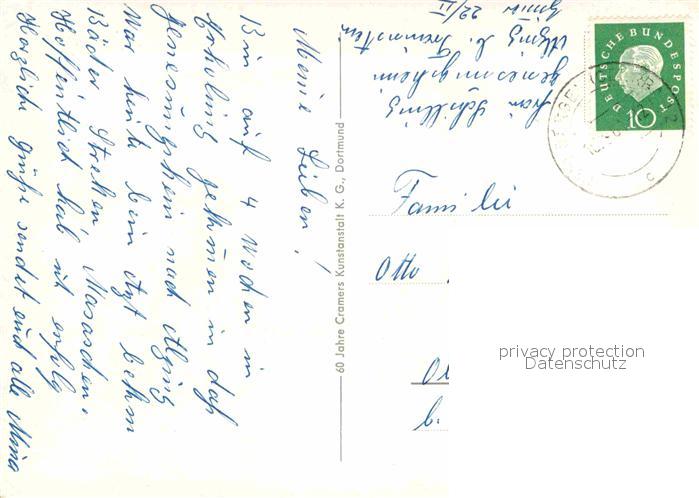 Meine Lieben!
Bin auf 4 Wochen in
Erholung gekommen in das
Genesungsheim nach Utzing
War heute beim Arzt bekom
Bäder Strecken Masaschen.
Hoffentlich hab ich erfolg
Herzliche Grüße sendet euch alle Mina
60 Jahre Cramers Kunstanstalt K. G., Dortmund
Frau Schilling
genesungsheim
DEUTSCHE BUNDESPOST
10
Familie
Otto
privacy protection
Datenschutz